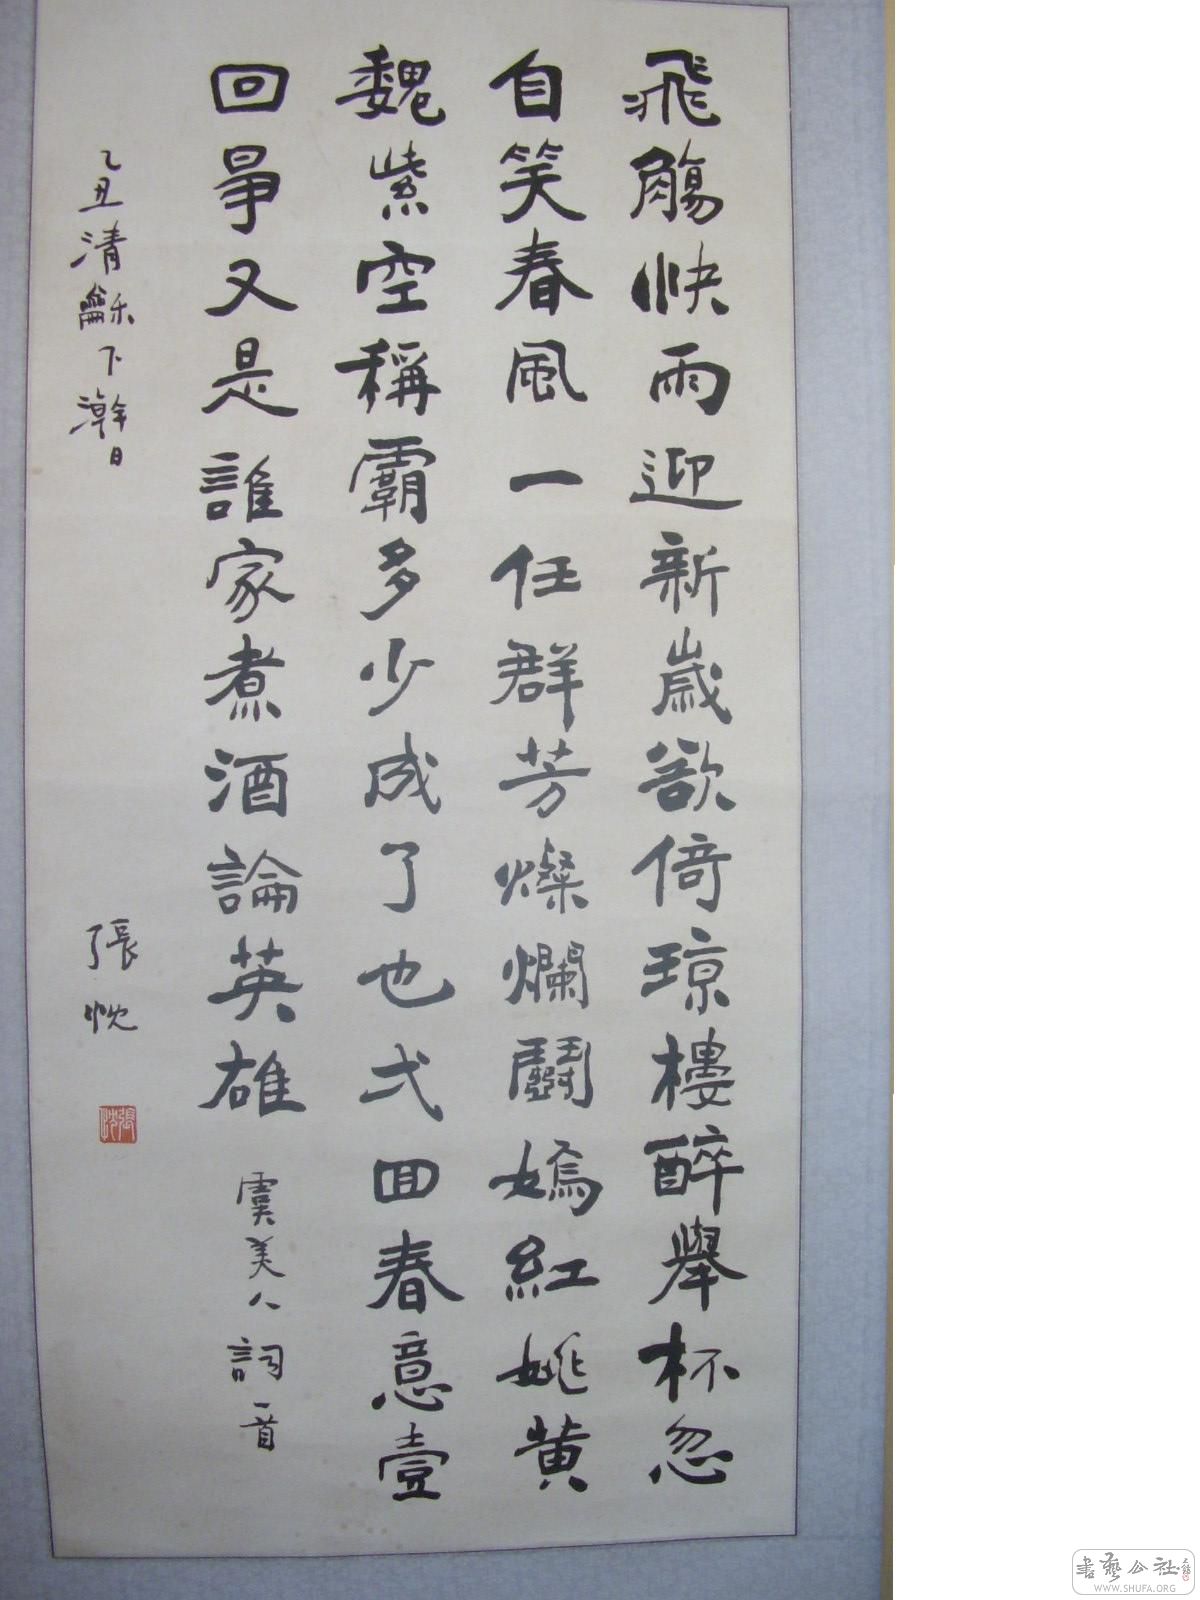 飛觴快雨迎新歲欲倚瓊樓醉舉杯忽
自笑春風一任群芳燦爛鬭嫣紅姚黄
魏紫空稱霸多少成了也弍回春意壹
回爭又是誰家煮酒論英雄
虞美人詞一首
乙丑清龢下澣日
張忱
張忱
書藝公社
WWW.SHUFA.ORG